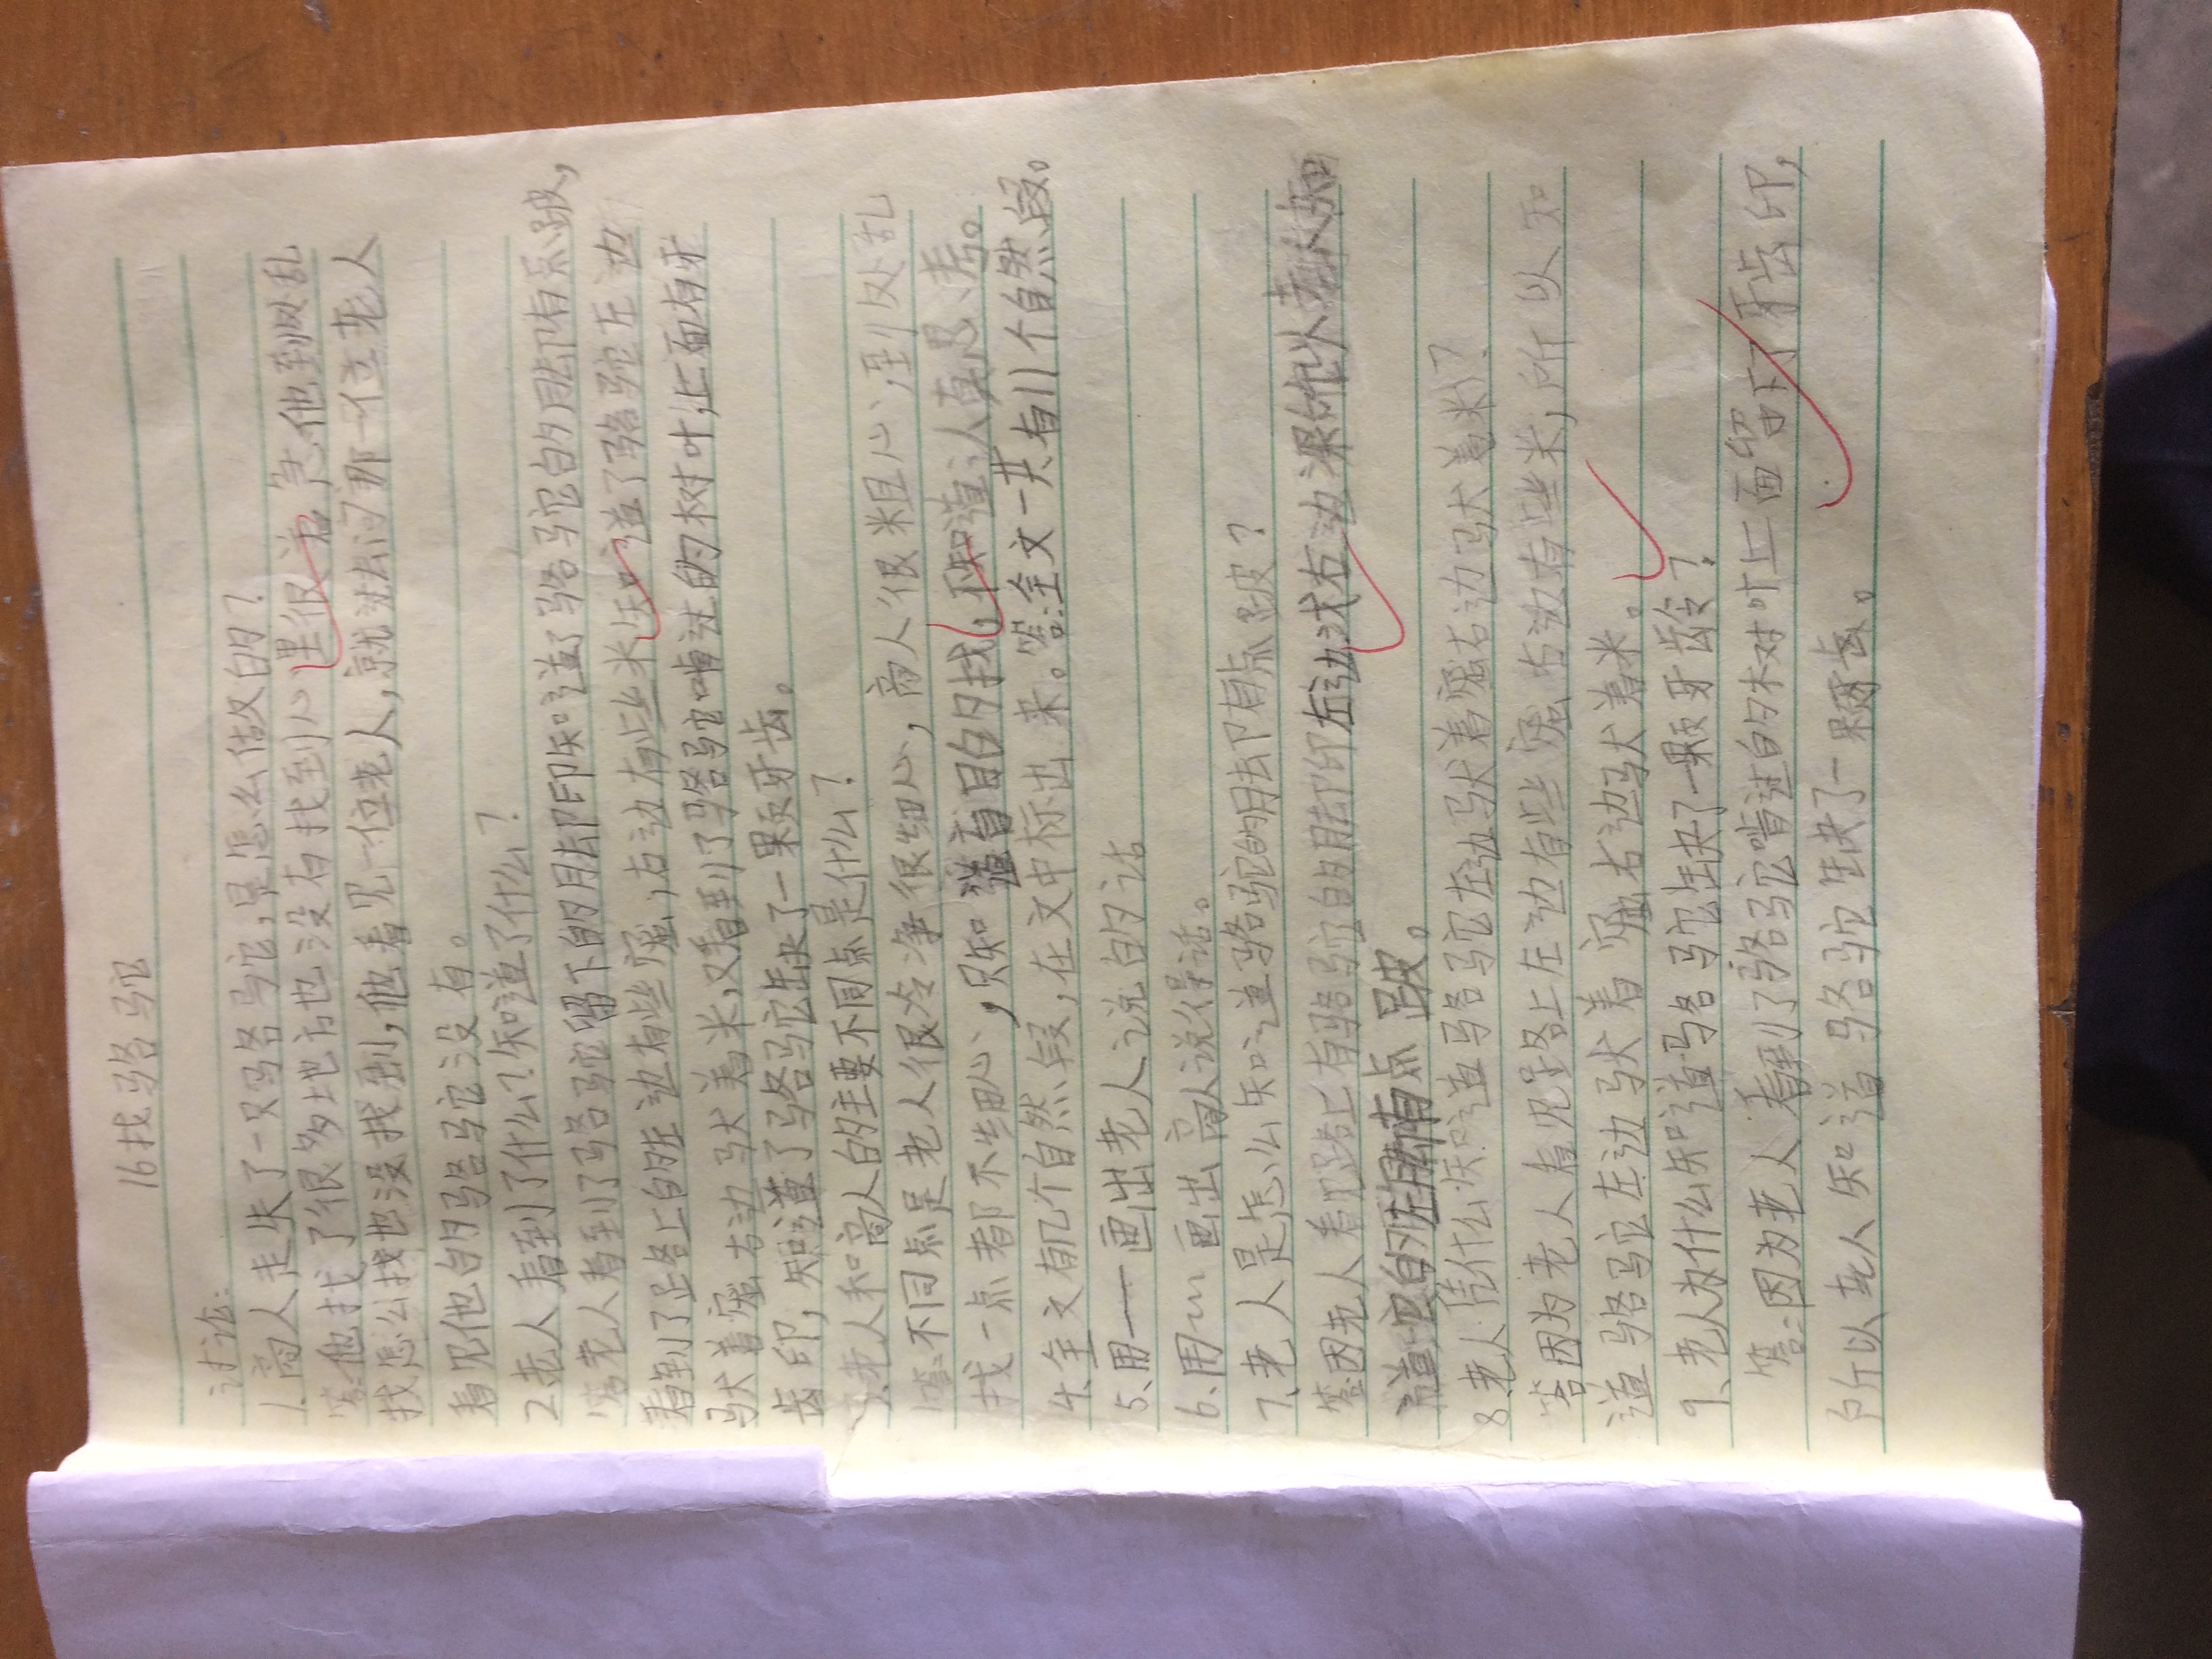 16找骆驼
讨论:
1.商人走失了一只骆驼,是怎么做的?
答:他找了很多地方也没有找到心里很着急他到处乱
找怎么找也没找到,他看见一位老人,就过去问那一位老人
看见他的骆驼没有。
2.老人看到了什么?知道了什么?
答老人看到了骆驼留下的脚印知道了骆驼的脚有点跛,
看到了路上的左边有些蜜,右边有些米知道了骆驼左边
驮着蜜右边驮着米,又看到了骆驼啃过的树叶上面有牙
齿印,知道了骆驼缺了一颗牙齿。
3.老人和商人的主要不同点是什么?
答不同点是老人很冷净很细心,商人很粗心,到处乱
找一点都不细心,只知道盲目的找,不知道认真思考。
4.全文有几个自然段,在文中标出来。答:全文一共有11个自然段。
5.用——画出老人说的话
6.用﹏画出商人说得话。
7.老人是怎么知道骆驼的脚有点跛?
答:因老人看见路上有骆驼的脚印右边浅左边深所以老人知
道它的脚有点跛。
8.老人凭什么知道骆驼左边驮着蜜右边驮着米?
答因为老人看见路上左边有些蜜右边有些米,所以知
道骆驼左边驮着蜜右边驮着米。
9、老人为什么知道骆驼缺了一颗牙齿?
答:因为老人看到了骆驼啃过的树叶上面留下了牙齿印,
所以老人知道骆驼缺了一颗齿。